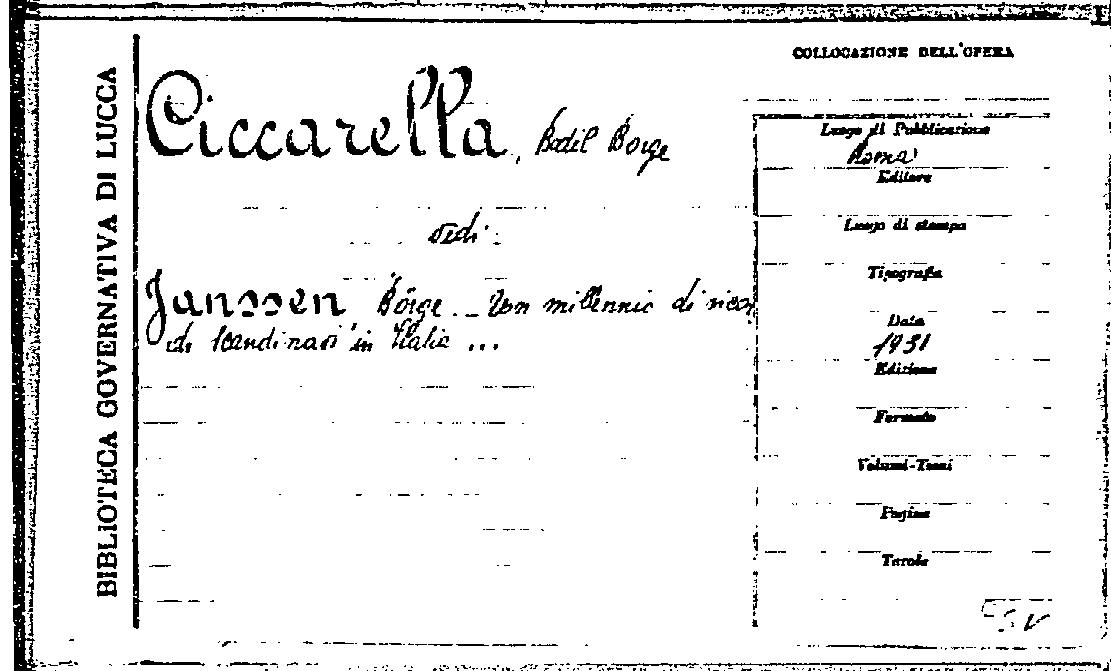 BIBLIOTECA GOVERNATIVA DI LUCCA
COLLOCAZIONE DELL'OPERA
Ciccarella, Bodil Borge
vedi:
Janssen Börge _ Un millennio di
di Scandinavi in Italia ...
Luogo di Pubblicazione
Roma
Editore
Luogo di stampa
Tipografia
Data
1931
Edizione
Formato
Volumi-Tomi
Pagine
Tavole